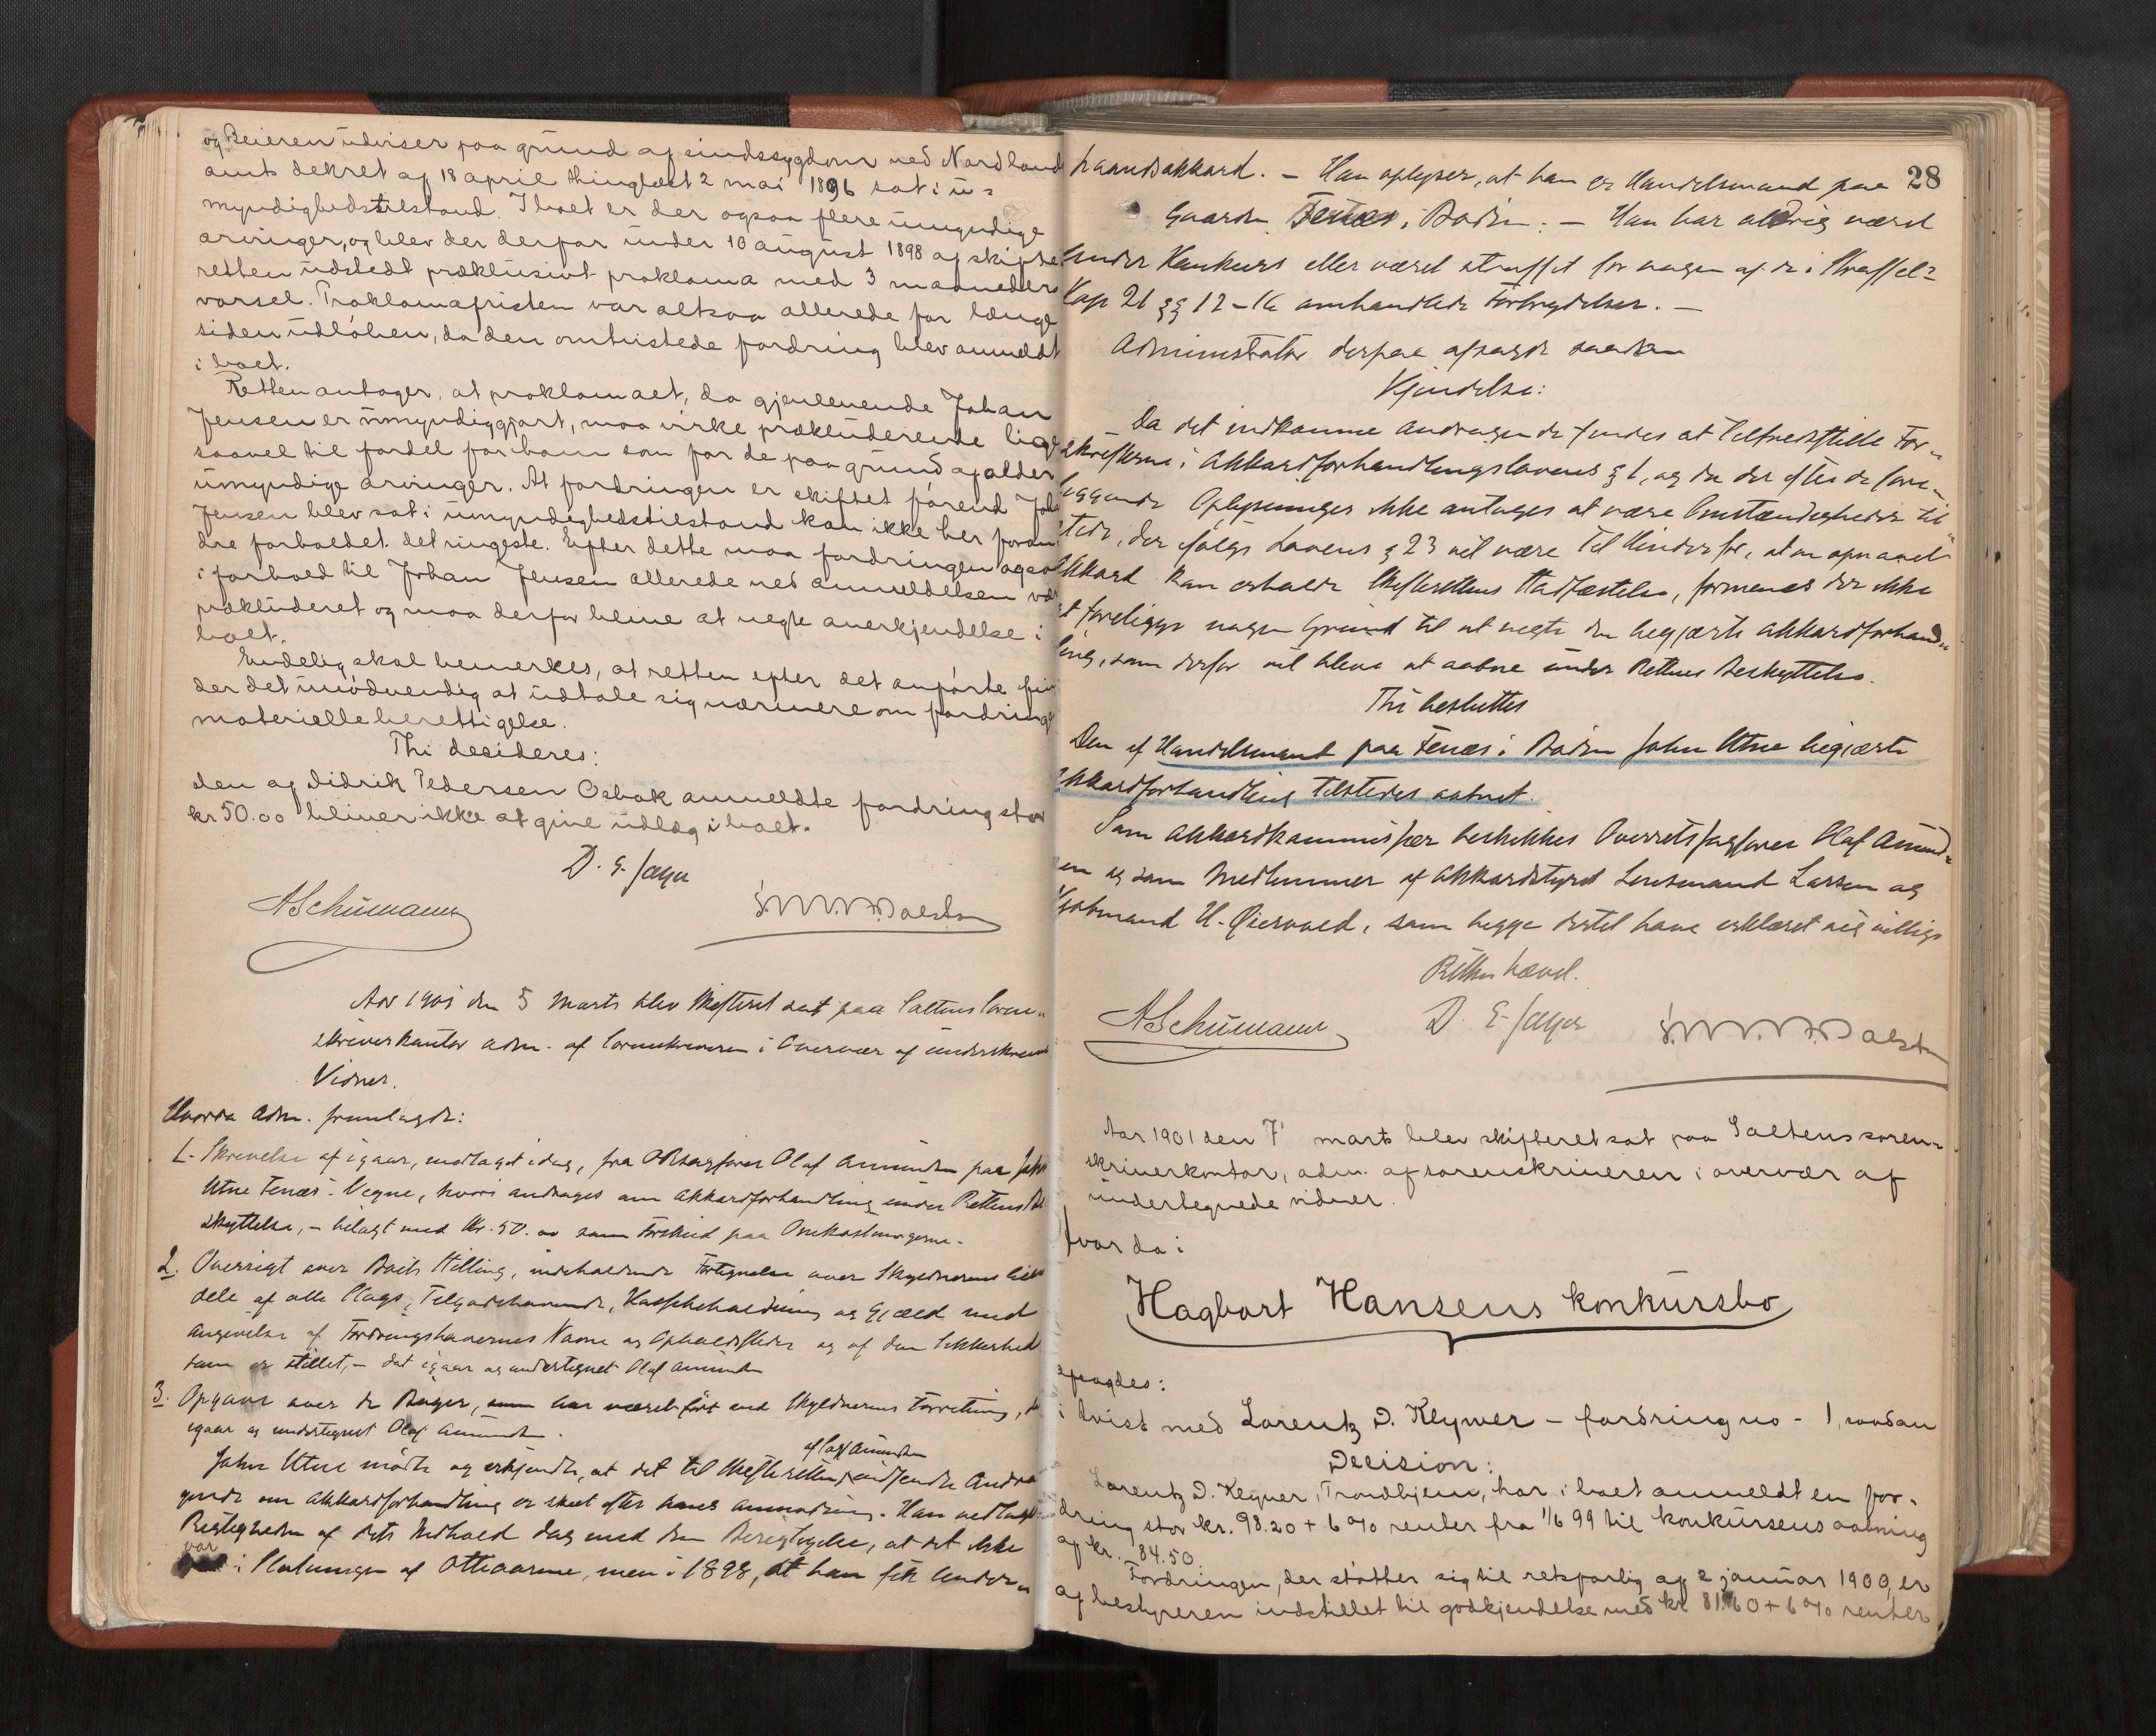 og Beieren udviser paa grund af sindssygdom ved Nordland
amts dekret af 18 april thinglæst 2 mai 1896 sat i u=
myndighedstilstand. I boet er der ogsaa flere umyndige
arvinger, og blev der derfor under 10 august 1898 af skifte
retten udstedt præklusivt proklama med 3 maaneders
varsel. Proklamafristen var altsaa allerede for længe
siden udløben, da den omtvistede fordring blev anmeldt
i boet.
Retten antager, at proklamaet, da gjenlevende Johan
Jensen er umyndiggjort, maa virke prækluderende lige
saavel til fordel for ham som for de paa grund af alder
umyndige arvinger. At fordringen er skiftet førend Joh
Jensen blev sat i umyndighedstilstand kan ikke her foran
dre forholdet det ringeste. Efter dette maa fordringen ogsaa
i forhold til Johan Jensen allerede ved anmeldelsen vær
prækluderet og maa derfor blive at negte anerkjendelse i
boet.
Endelig skal bemerkes, at retten efter det anførte fin
der det unødvendig at udtale sig nærmere om fordringe
materielle berettigelse.
Thi desideres:
den af Didrik Pedersen Osbak anmeldte fordring stor
kr 50.00 bliver ikke at give udlæg i boet.
D. E. Jæger
A Schumann
Aar 1901 den 5 Marts blev Skifteret sat paa Saltens Soren=
skriverkontor adm. af Sorenskriveren i Overvær af underskrevne
Vidner.
Hvorda Adm. fremlagde:
1. Skrivelse af igaar, modtaget idag, fra ORsagfører Olaf Amundsen paa John
Utne Fenæs' Vegne, hvori andrages om Akkordforhandling under Rettens Be
skyttelse, – bilagt med Kr. 50.00 som Forskud paa Omkostningerne.
2. Oversigt over Boets Stilling, indeholdende Fortegnelse over Skyldnerens Eien
dele af alle Slags, Tilgodehavende, Kassebeholdning og Gjæld med
Angivelse af Fordringshavernes Navne og Opholdssteder og af den Sikkerhed
som er stillet, – dat igaar og undertegnet Olaf Amundsen
3. Opgave over de Bøger, som har været ført ved Skyldnerens Forretning, d
igaar og undertegnet Olaf Amundsen.
af Olaf Amundsen
John Utne mødte og erkjendte, at det til Skifteretten indsendte Andra
gende om Akkordforhandling er skeet efter hans Anmodning. Han vedtog
Rigtigheden af dets Indhold dog med den Berigtigelse, at det ikke
var
i Slutningen af Ottiaarene, men i 1898, at han fik Under=
28
haandsakkord. – Han oplyser, at han er Handelsmand paa
Gaarden Fenæs i Bodin. – Han har aldrig været
under Konkurs eller været straffet for nogen af de i Straffel=
Kap 21 §§ 12–16 omhandlede Forbrydelser. –
Administrator derpaa afsagde saadan
Kjendelse:
Da det indkomne Andragende findes at tilfredsstille For=
skrifterne i Akkordforhandlingslovens § 1, og da der efter de fore=
liggende Oplysninger ikke antages at være Omstændigheder til
stede, der ifølge Lovens § 23 vil være til Hinder for, at en opnaaet
Akkord kan erholde Skifterettens Stadfæstelse, formenes der ikke
at foreligge nogen Grund til at negte den begjærte Akkordforhand=
ling, som derfor vil blive at aabne under Rettens Beskyttelse.
Thi besluttes
Den af Handelsmand paa Fenæs i Bodin John Utne begjærte
Akkordforhandling tilstedes aabnet.
Som Akkordkommissær beskikkes Overretssagfører Olaf Amund=
sen og som Medlemmer af Akkordstyret Lensmand Larsen og
Kjøbmand H. Qiervold, som begge dertil have erklæret sig villige
Retten hævet.
A Schumann
D. E. Jæger
Aar 1901 den 7 marts blev skifteret sat paa Saltens soren=
skriverkontor, adm. af sorenskriveren i overvær af
undertegnede vidner.
Hvorda i
Hagbart Hansens konkursbo
afsagdes:
i tvist med Lorentz D. Klywer – fordring no – 1, saadan
Decision:
Lorentz D. Klyver, Trondhjem, har i boet anmeldt en for=
dring stor kr. 98.20 + 6 % renter fra 1/6 99 til konkursens aabning
af kr. 84.50.
Fordringen, der støtter sig til retsforlig af 2 januar 1900, er
af bestyreren indstillet til godkjendelse med kr 81.60 + 6 % renter